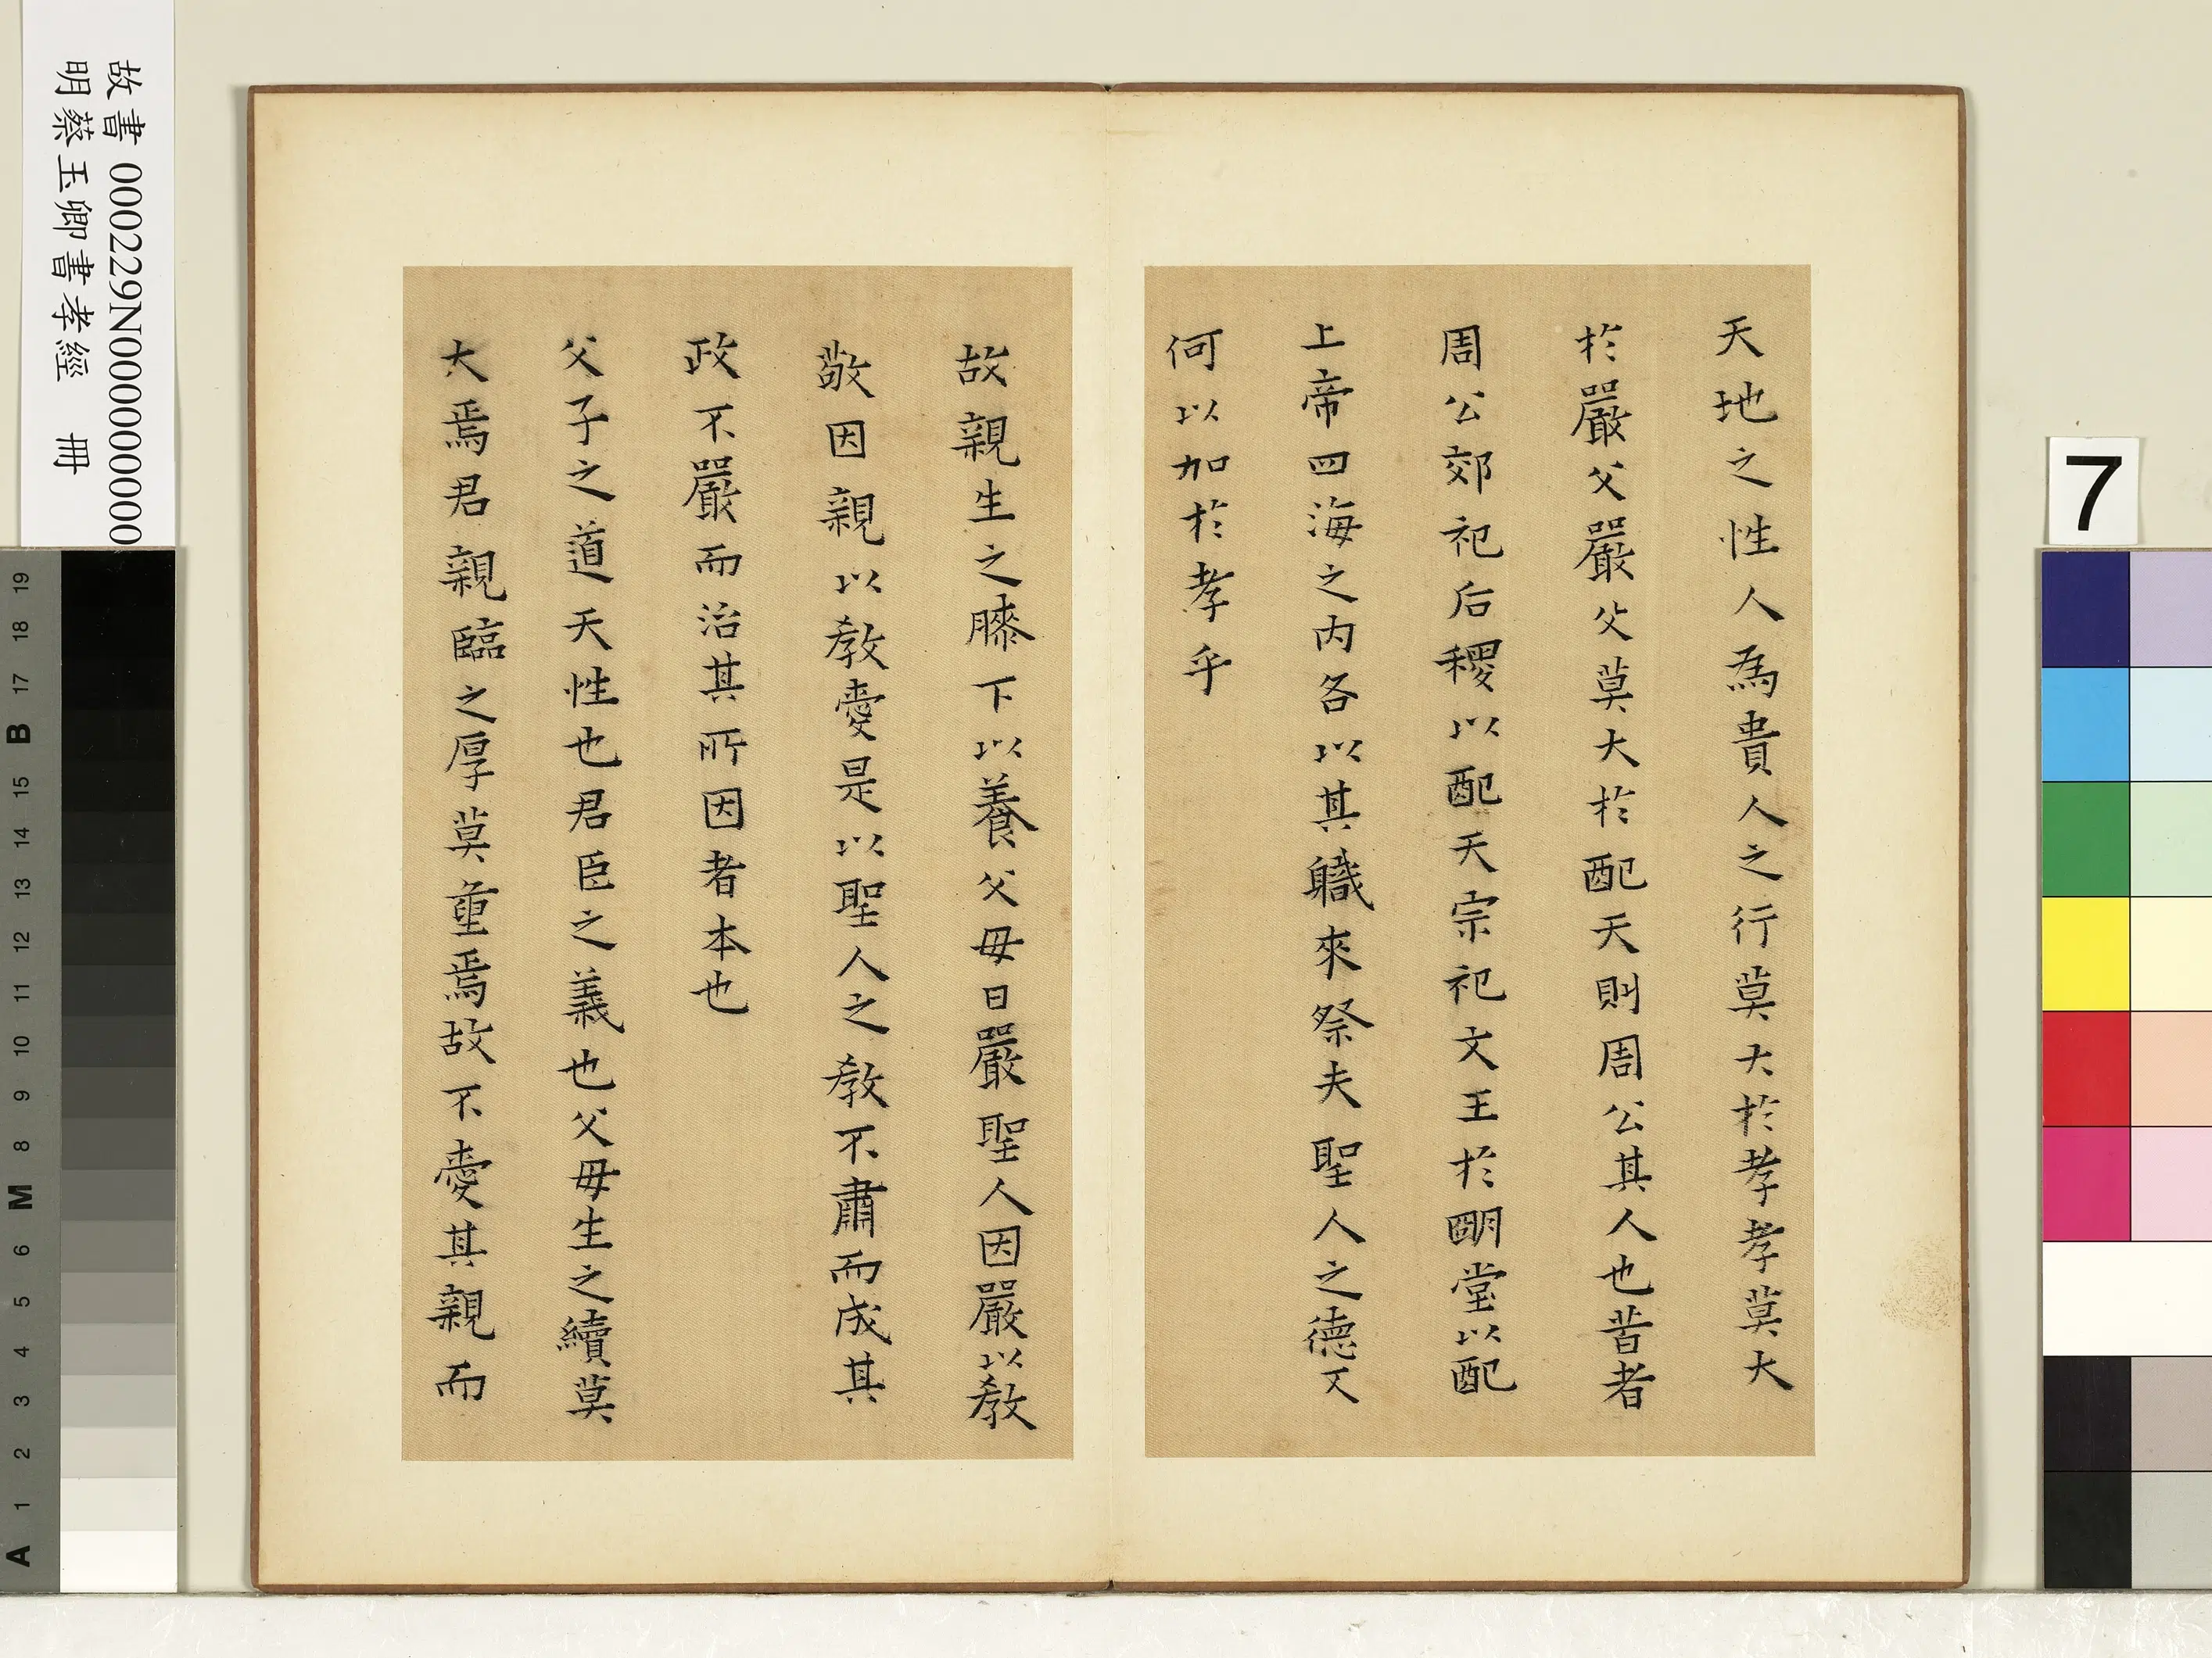 天地之性人為貴人之行莫大於孝孝莫大
於嚴父嚴父莫大於配天則周公其人也昔者
周公郊祀后稷以配天宗祀文王於明堂以配
上帝四海之內各以其職來祭夫聖人之德又
何以加於孝乎
故親生之膝下以養父母日嚴聖人因嚴以教
敬因親以教愛是以聖人之教不肅而成其
政不嚴而治其所因者本也
父子之道天性也君臣之義也父母生之續莫
大焉君親臨之厚莫重焉故不愛其親而
故書000229N000000000
明蔡玉卿書孝經 冊
7
A 1 2 3 4 5 6 M 8 9 10 11 12 13 14 15 B 17 18 19